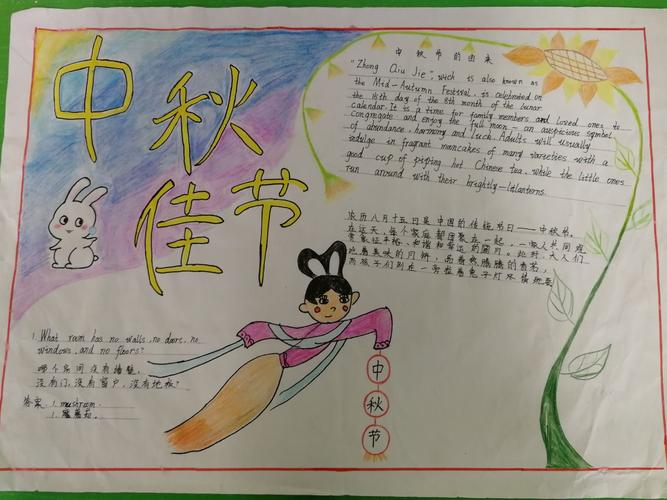 中秋
佳节
中秋节的由来
"Zhong Qiu Jie", wich is also known as
the Mid-Autumn Festival, is celebrated on
the 15th day of the 8th month of the lunar
calendar. It is a time for family members and loved ones to
congregate and enjoy the full moon - an auspicious symbol
of abundance, harmony and luck. Adults will usually
indulge in fragrant mooncakes of many varieties with a
good cup of piping hot Chinese tea, while the little ones
run around with their brightly-lanterns.
农历八月十五日是中国的传统节日——中秋节。
在这天,每个家庭都团聚在一起,一家人共同观
赏象征丰裕、和谐和幸运的圆月。此时,大人们
吃着美味的月饼,品着热腾腾的香茗,
而孩子们则在一旁拉着兔子灯
1. What room has no walls, no doors, no
windows, and no floors?
哪个房间没有墙壁,
没有门,没有窗户,没有地板?
答案: 1. mushroom.
1. 蘑菇.
中
秋
节